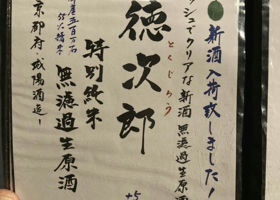 新酒入荷致しました!
ッシュでクリアな新酒 無濾過生原酒
徳次郎
とくじろう
特別純米
無濾過生原酒
五百万石
京都府・城陽酒造
+5